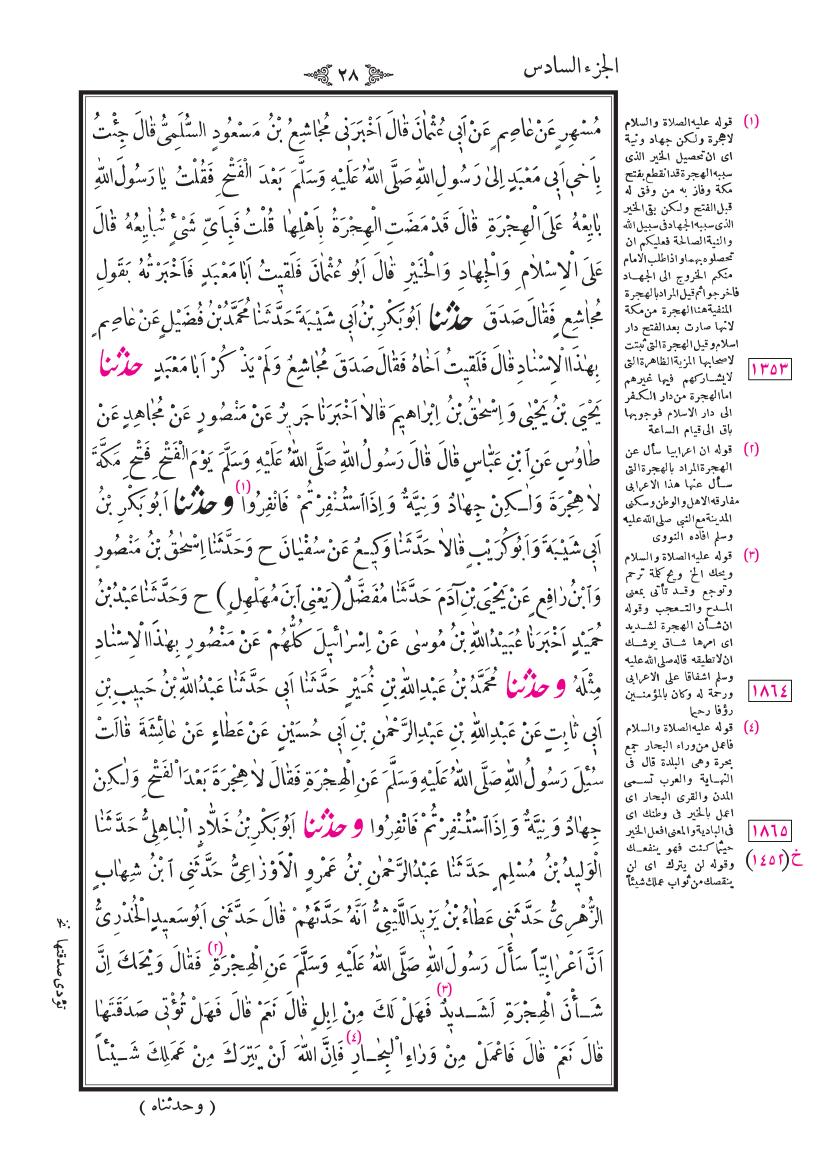 الجزء السادس
٢٨
مُسْهِرٍ عَنْ عَاصِمٍ عَنْ اَبِى عُثْمَانَ قَالَ اَخْبَرَنِى مُجَاشِعُ بْنُ مَسْعُودٍ السُّلَمِىُّ قَالَ جِئْتُ
بِاَخِى اَبِى مَعْبَدٍ اِلىٰ رَسُولِ اللّٰهِ صَلَّى اللّٰهُ عَلَيْهِ وَسَلَّمَ بَعْدَ الْفَتْحِ فَقُلْتُ يَا رَسُولَ اللّٰهِ
بَايِعْهُ عَلَى الْهِجْرَةِ قَالَ قَدْ مَضَتِ الْهِجْرَةُ بِاَهْلِهَا قُلْتُ فَبِاَىِّ شَىْءٍ تُبَايِعُهُ قَالَ
عَلَى الْاِسْلَامِ وَالْجِهَادِ وَالْخَيْرِ قَالَ اَبُو عُثْمَانَ فَلَقِيتُ اَبَا مَعْبَدٍ فَاَخْبَرْتُهُ بِقَوْلِ
مُجَاشِعٍ فَقَالَ صَدَقَ حدثنا اَبُو بَكْرِ بْنُ اَبِى شَيْبَةَ حَدَّثَنَا مُحَمَّدُ بْنُ فُضَيْلٍ عَنْ عَاصِمٍ
بِهٰذَا الْاِسْنَادِ قَالَ فَلَقِيتُ اَخَاهُ فَقَالَ صَدَقَ مُجَاشِعٌ وَلَمْ يَذْكُرْ اَبَا مَعْبَدٍ حدثنا
يَحْيَى بْنُ يَحْيٰى وَاِسْحٰقُ بْنُ اِبْرَاهِيمَ قَالَا اَخْبَرَنَا جَرِيرٌ عَنْ مَنْصُورٍ عَنْ مُجَاهِدٍ عَنْ
طَاوُسٍ عَنِ ابْنِ عَبَّاسٍ قَالَ قَالَ رَسُولُ اللّٰهِ صَلَّى اللّٰهُ عَلَيْهِ وَسَلَّمَ يَوْمَ الْفَتْحِ فَتْحِ مَكَّةَ
لَا هِجْرَةَ وَلٰكِنْ جِهَادٌ وَنِيَّةٌ وَاِذَا اسْتُنْفِرْتُمْ فَانْفِرُوا (١) وحدثنا اَبُو بَكْرِ بْنُ
اَبِى شَيْبَةَ وَاَبُو كُرَيْبٍ قَالَا حَدَّثَنَا وَكِيعٌ عَنْ سُفْيَانَ ح وَحَدَّثَنَا اِسْحٰقُ بْنُ مَنْصُورٍ
وَابْنُ رَافِعٍ عَنْ يَحْيَى بْنِ آدَمَ حَدَّثَنَا مُفَضَّلٌ (يَعْنِى ابْنَ مُهَلْهِلٍ) ح وَحَدَّثَنَا عَبْدُ بْنُ
حُمَيْدٍ اَخْبَرَنَا عُبَيْدُ اللّٰهِ بْنُ مُوسٰى عَنْ اِسْرَائِيلَ كُلُّهُمْ عَنْ مَنْصُورٍ بِهٰذَا الْاِسْنَادِ
مِثْلَهُ وحدثنا مُحَمَّدُ بْنُ عَبْدِ اللّٰهِ بْنِ نُمَيْرٍ حَدَّثَنَا اَبِى حَدَّثَنَا عَبْدُ اللّٰهِ بْنُ حَبِيبِ بْنِ
اَبِى ثَابِتٍ عَنْ عَبْدِ اللّٰهِ بْنِ عَبْدِ الرَّحْمٰنِ بْنِ اَبِى حُسَيْنٍ عَنْ عَطَاءٍ عَنْ عَائِشَةَ قَالَتْ
سُئِلَ رَسُولُ اللّٰهِ صَلَّى اللّٰهُ عَلَيْهِ وَسَلَّمَ عَنِ الْهِجْرَةِ فَقَالَ لَا هِجْرَةَ بَعْدَ الْفَتْحِ وَلٰكِنْ
جِهَادٌ وَنِيَّةٌ وَاِذَا اسْتُنْفِرْتُمْ فَانْفِرُوا وحدثنا اَبُو بَكْرِ بْنُ خَلَّادٍ الْبَاهِلِىُّ حَدَّثَنَا
الْوَلِيدُ بْنُ مُسْلِمٍ حَدَّثَنَا عَبْدُ الرَّحْمٰنِ بْنُ عَمْرٍو الْاَوْزَاعِىُّ حَدَّثَنِى ابْنُ شِهَابٍ
الزُّهْرِىُّ حَدَّثَنِى عَطَاءُ بْنُ يَزِيدَ اللَّيْثِىُّ اَنَّهُ حَدَّثَهُمْ قَالَ حَدَّثَنِى اَبُو سَعِيدٍ الْخُدْرِىُّ
اَنَّ اَعْرَابِيًّا سَأَلَ رَسُولَ اللّٰهِ صَلَّى اللّٰهُ عَلَيْهِ وَسَلَّمَ عَنِ الْهِجْرَةِ (٢) فَقَالَ وَيْحَكَ اِنَّ
شَأْنَ الْهِجْرَةِ لَشَدِيدٌ (٣) فَهَلْ لَكَ مِنْ اِبِلٍ قَالَ نَعَمْ قَالَ فَهَلْ تُؤْتِى صَدَقَتَهَا
قَالَ نَعَمْ قَالَ فَاعْمَلْ مِنْ وَرَاءِ الْبِحَارِ (٤) فَاِنَّ اللّٰهَ لَنْ يَتِرَكَ مِنْ عَمَلِكَ شَيْئًا
( وحدثناه )
(١) قوله عليه الصلاة والسلام
لا هجرة ولكن جهاد ونية
اى ان تحصيل الخير الذى
سببه الهجرة قد انقطع بفتح
مكة وفاز به من وفق له
قبل الفتح ولكن بقى الخير
الذى سببه الجهاد فى سبيل الله
والنية الصالحة فعليكم ان
تحصلوه بهما واذا طلب الامام
منكم الخروج الى الجهاد
فاخرجوا ثم قيل المراد بالهجرة
المنفية هنا الهجرة من مكة
لانها صارت بعد الفتح دار
اسلام وقيل الهجرة التى ثبتت
لاصحابها المزية الظاهرة التى
لا يشاركهم فيها غيرهم
اما الهجرة من دار الكفر
الى دار الاسلام فوجوبها
باق الى قيام الساعة
(٢) قوله ان اعرابيا سأل عن
الهجرة المراد بالهجرة التى
سأل عنها هذا الاعرابى
مفارقة الاهل والوطن وسكنى
المدينة مع النبى صلى الله عليه
وسلم افاده النووى
(٣) قوله عليه الصلاة والسلام
ويحك الخ ويح كلمة ترحم
وتوجع وقد تأتى بمعنى
المدح والتعجب وقوله
ان شأن الهجرة لشديد
اى امرها شاق يوشك
ان لا تطيقه قاله صلى الله عليه
وسلم اشفاقا على الاعرابى
ورحمة له وكان بالمؤمنين
رؤفا رحيما
(٤) قوله عليه الصلاة والسلام
فاعمل من وراء البحار جمع
بحرة وهى البلدة قال فى
النهاية والعرب تسمى
المدن والقرى البحار اى
اعمل بالخير فى وطنك اى
فى البادية والمعنى افعل الخير
حيثما كنت فهو ينفعك
وقوله لن يترك اى لن
ينقصك من ثواب عملك شيئا
١٣٥٣
١٨٦٤
١٨٦٥
خ (١٤٥٢)
تؤدى صدقتها نخ